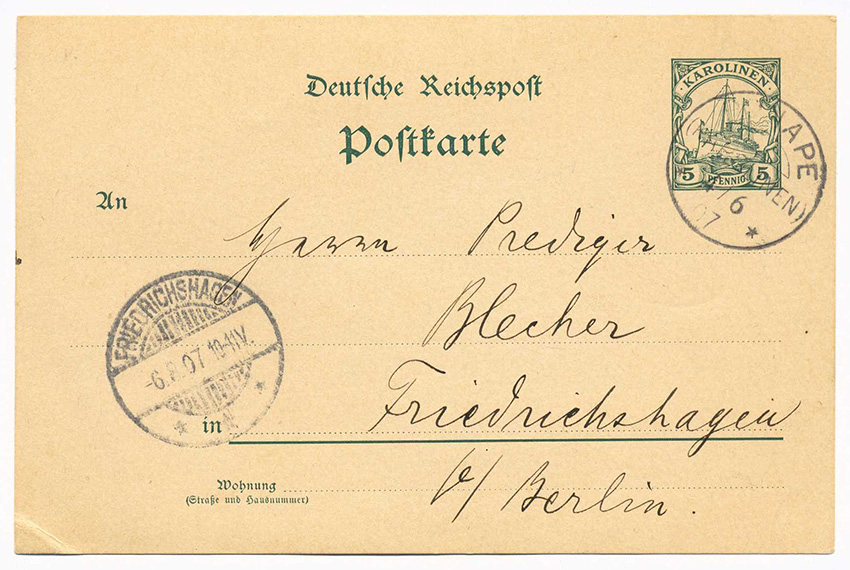 Deutsche Reichspost
Postkarte
KAROLINEN
5 PFENNIG 5
YAPE
(KAROLINEN)
4/6
07
*
An
Herrn Prediger
Blecher
FRIEDRICHSHAGEN
-6.8.07 10-11V.
* *
in Friedrichshagen
b/ Berlin.
Wohnung
(Straße und Hausnummer)